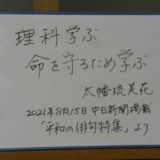 理科学ぶ
命を守るため学ぶ
太幡琉美花
2021年8月15日 中日新聞掲載
「平和の俳句特集」より